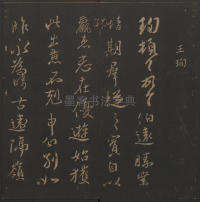 王珣
珣頓首頓首伯遠勝業
情期羣從之寶自以
羸患志在優遊始獲
此出意不剋申分別如
昨永為疇古遠隔嶺